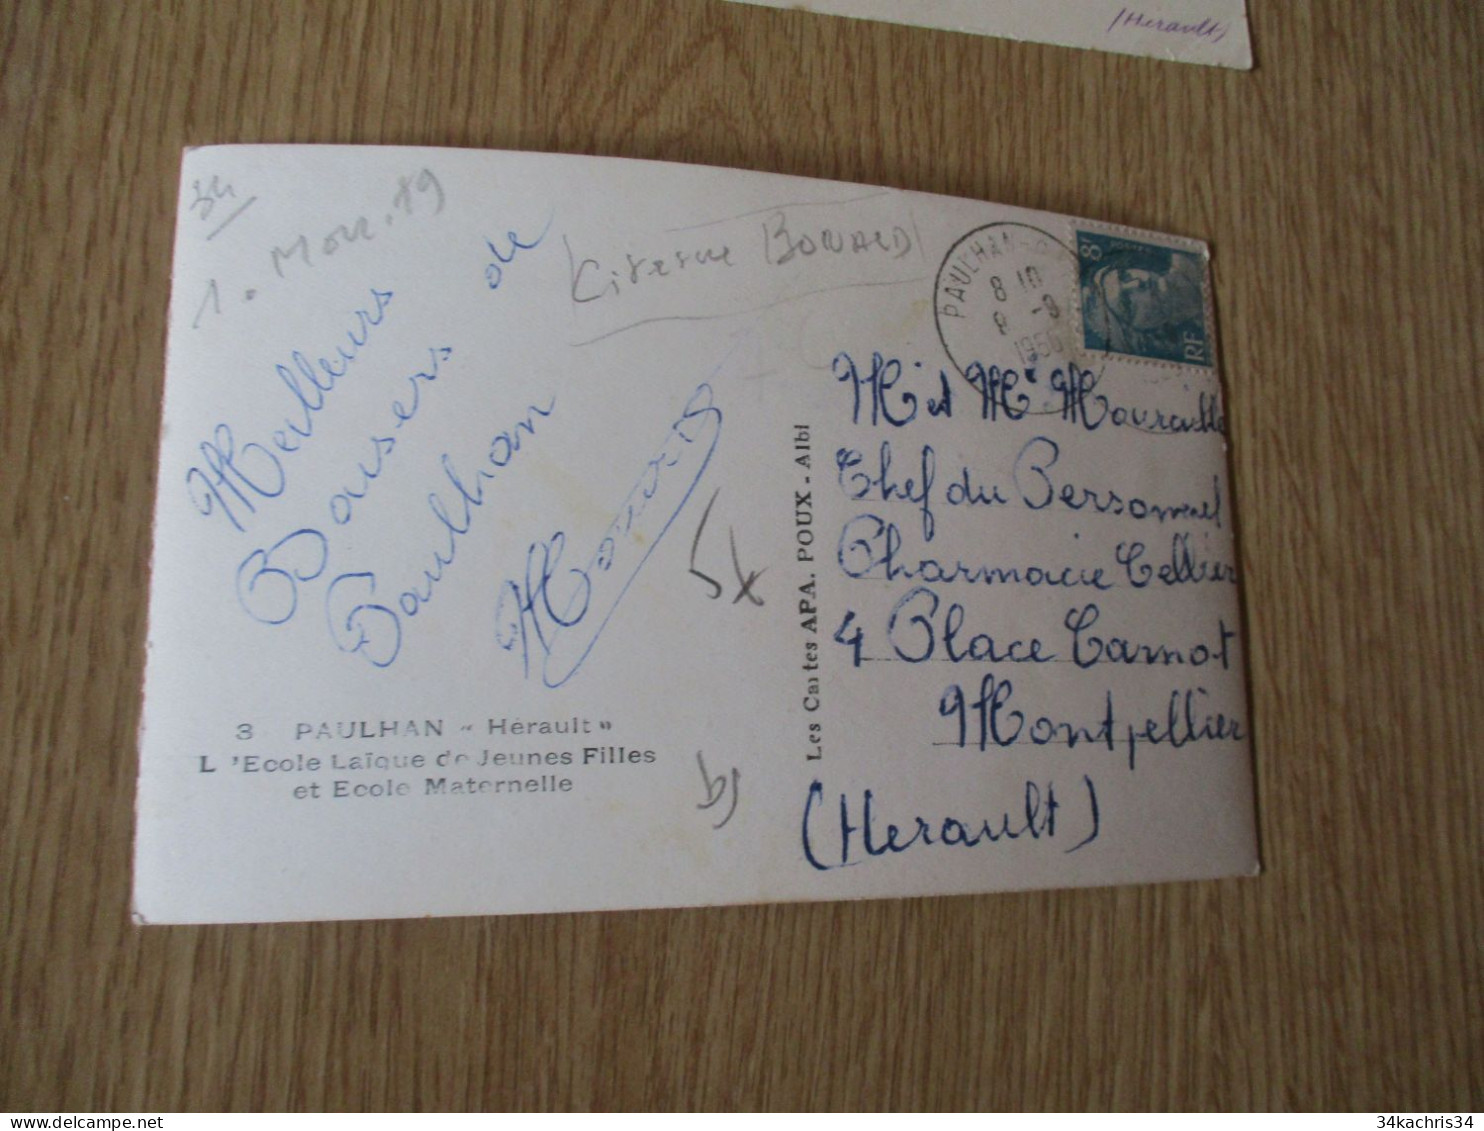 (Hérault)
34
1. Mars. 89
Citerne BONALD
Meilleurs
Baisers de
Paulhan
PAULHAN
8 10
-9
1950
8F
RF
M et Me
Chef du Personnel
Pharmacie Tellier
4 Place Carnot
Montpellier
(Herault)
Les Cartes APA. POUX - Albi
5x
3 PAULHAN "Hérault"
L'Ecole Laïque de Jeunes Filles
et Ecole Maternelle